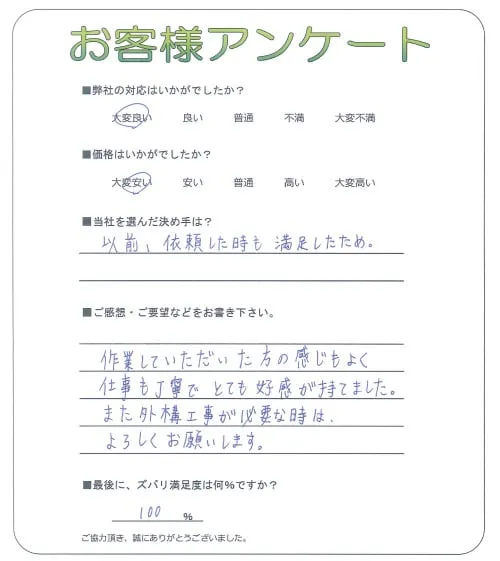 お客様アンケート
■弊社の対応はいかがでしたか？
大変良い 良い 普通 不満 大変不満
■価格はいかがでしたか？
大変安い 安い 普通 高い 大変高い
■当社を選んだ決め手は？
以前、依頼した時も満足したため。
■ご感想・ご要望などをお書き下さい。
作業していただいた方の感じもよく
仕事も丁寧でとても好感が持てました。
また外構工事が必要な時は、
よろしくお願いします。
■最後に、ズバリ満足度は何％ですか？
100 %
ご協力頂き、誠にありがとうございました。